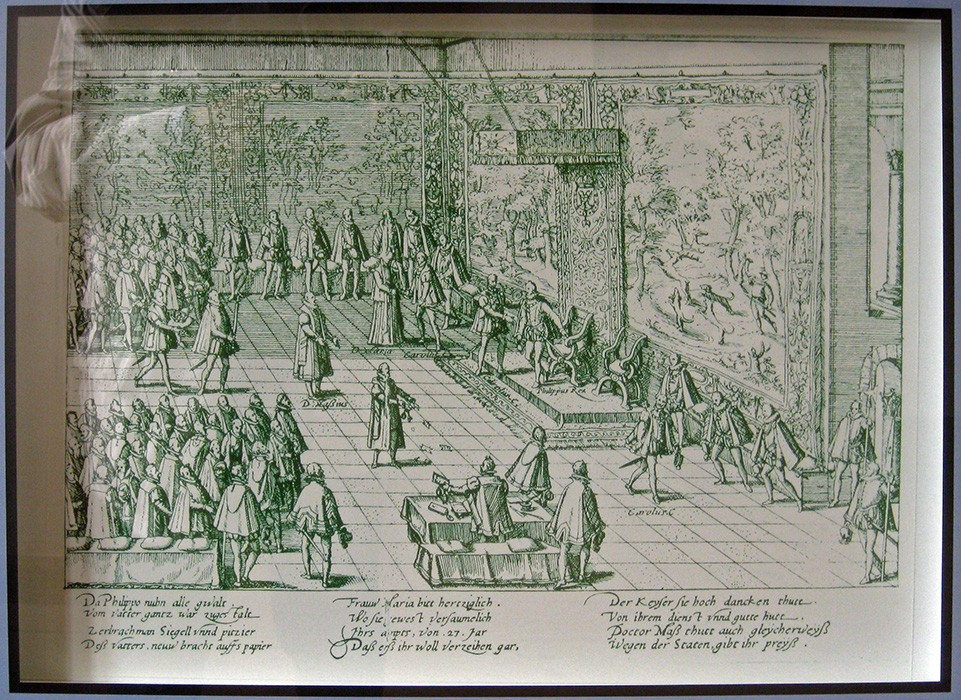 D. Maria
Carolus
Philippus Rex
D. Massius
Carolus C
Da Philippo nuhn alle gwalt
Vom vatter gantz war zuges talt
Zerbrach man Siegell vnnd pitzier
Deß vatters, neuw bracht auffs papier
Frauw Maria bitt hertziglich.
Wo sie ewest versaumelich
Ihrs ampts, von .27. Jar
Daß erß ihr woll verzeihen gar,
Der Keyser sie hoch dancken thutt.
Von ihrem diens't vnnd gutte hutt.
Doctor Maß thutt auch gleycherweyß
Wegen der Staten, gibt ihr preyß.